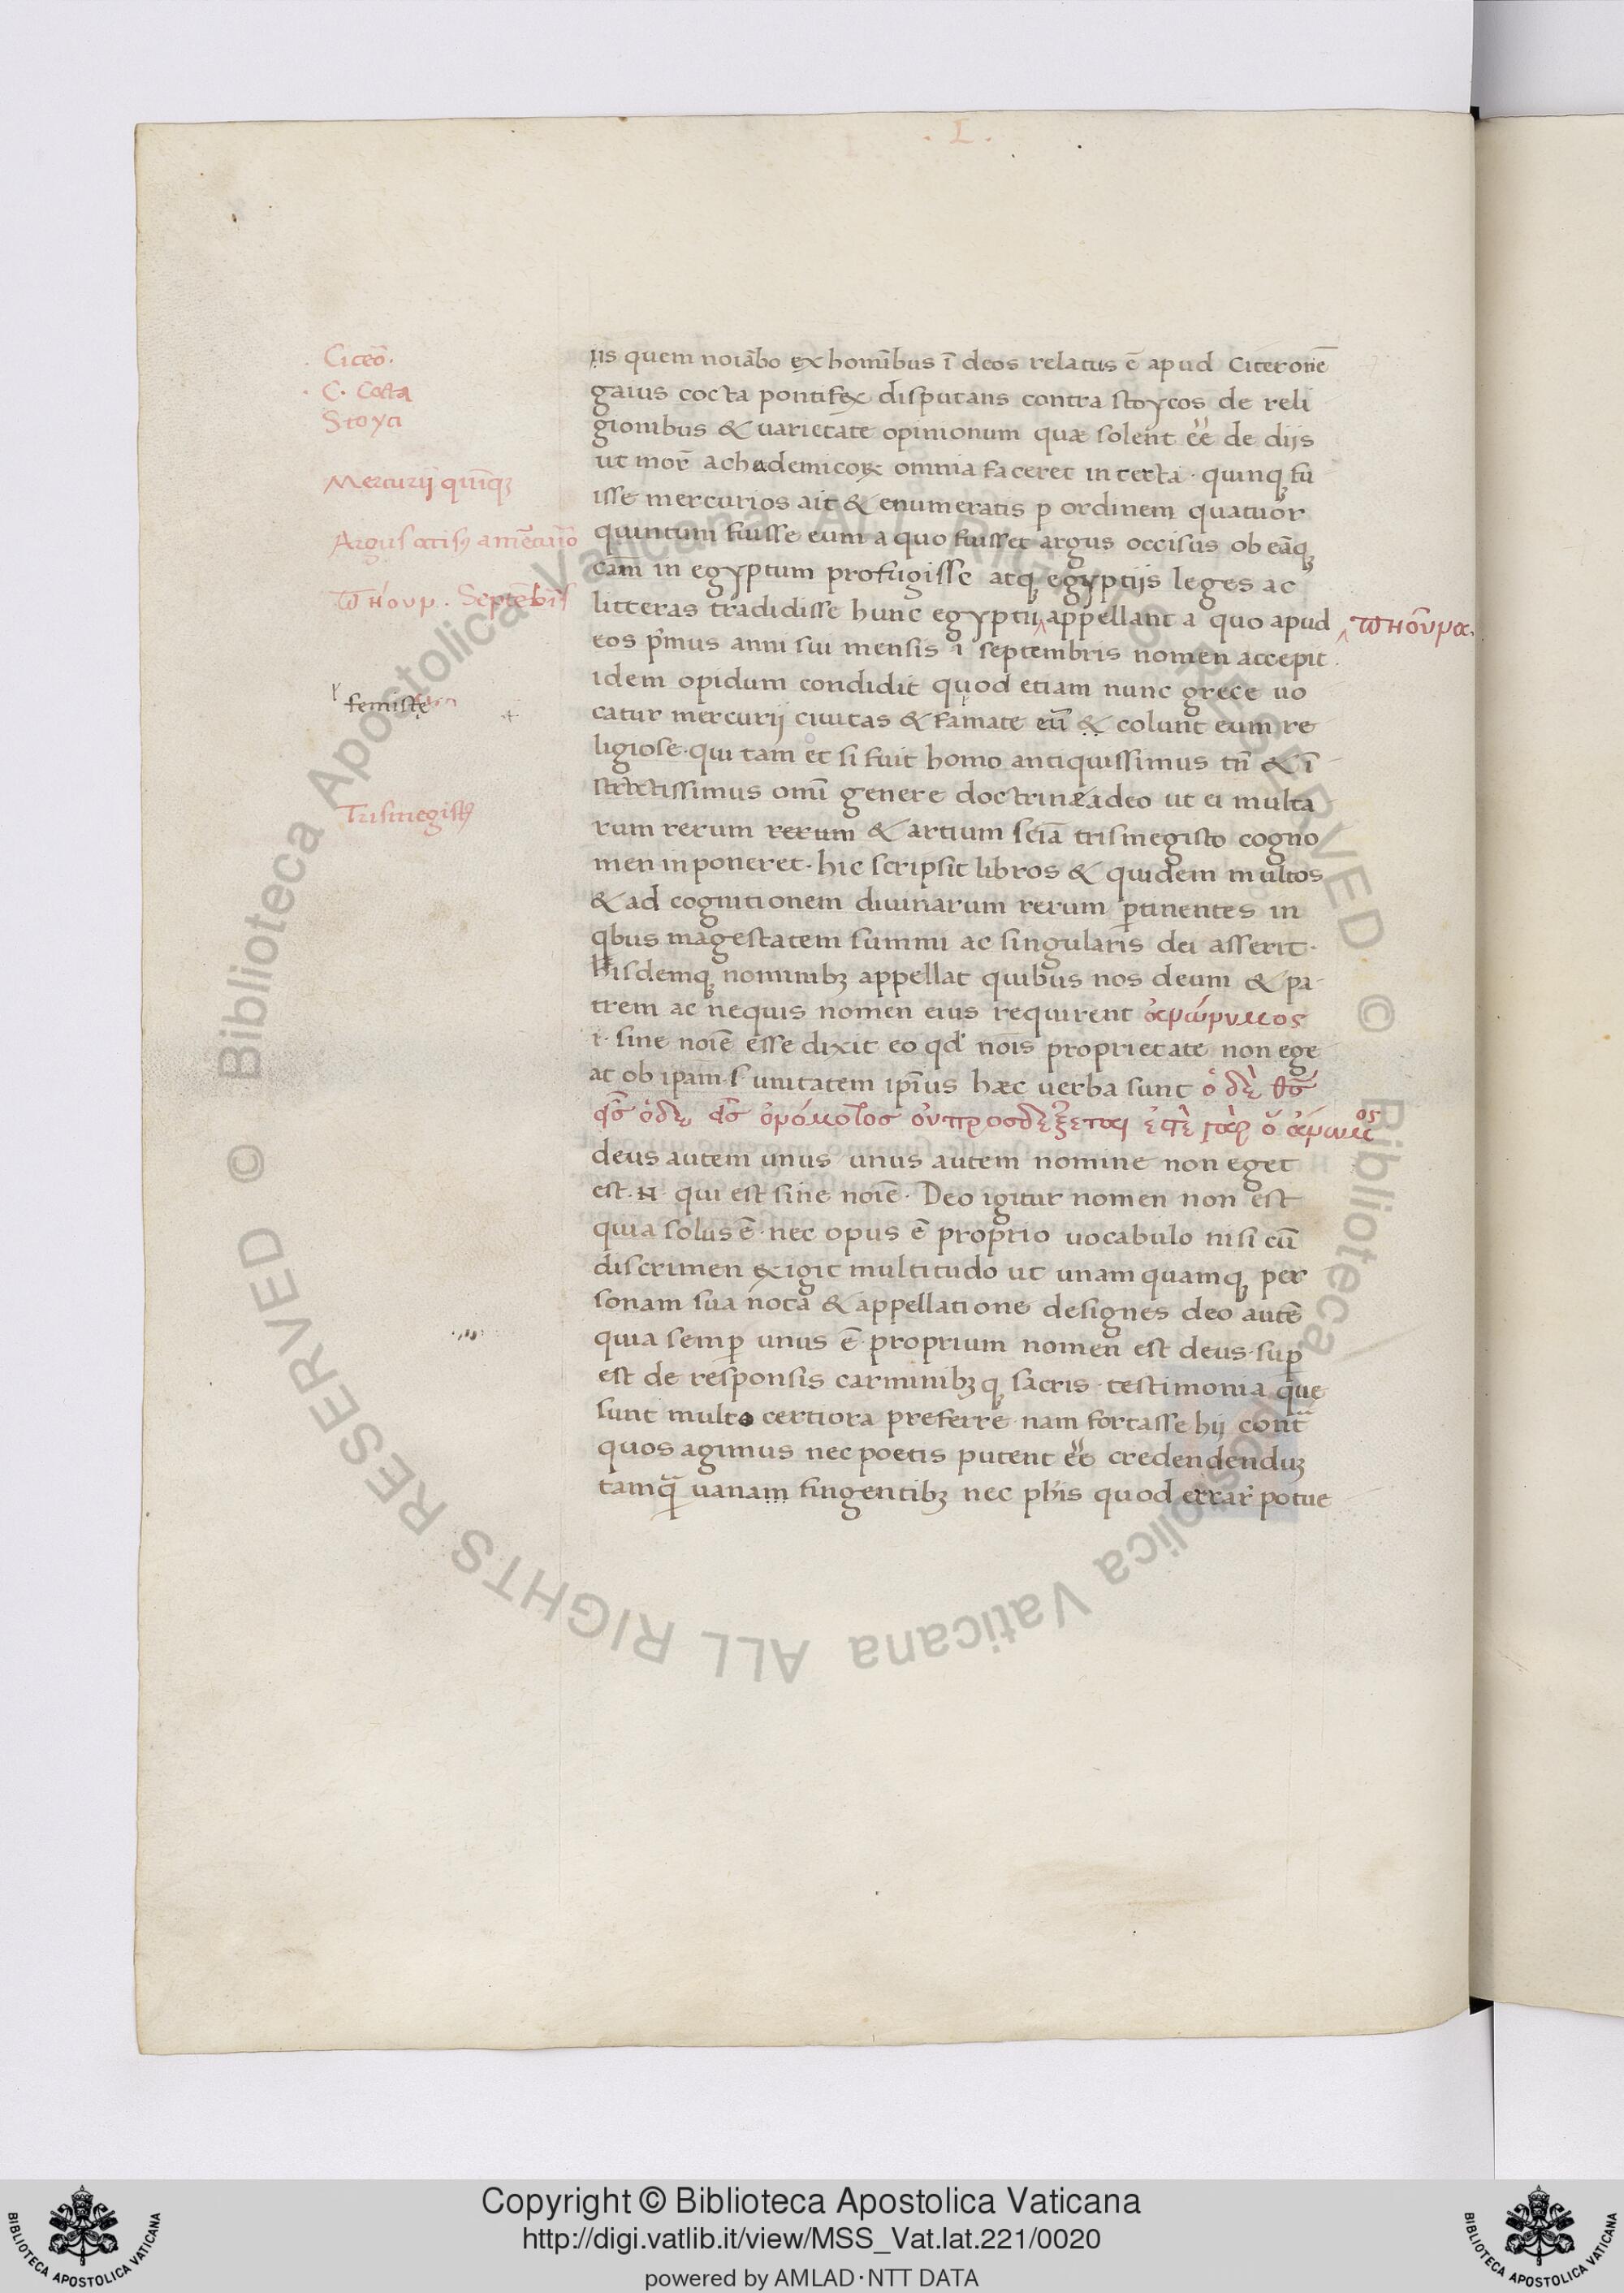 . I .
Ciceō.
C. Cocta
Stoyci
Mercurij quīq;
Septēbris
femiste
Trismegist9
ijs quem noiābo ex homībus ī deos relatus ē apud Ciceronē
gaius cocta pontifex disputans contra stoycos de reli
gionibus & uarietate opinionum quæ solent ēē de dijs
ut mor̄ achademicoꝝ omnia faceret incerta · quinq; fu
isse mercurios ait & enumeratis p ordinem quatuor
quintum fuisse eum a quo fuisset argus occisus ob eāq;
cām in egyptum profugisse atq; egyptijs leges ac
litteras tradidisse hunc egyptii appellant a quo apud
ϖηούμα.
eos pⁱmus anni sui mensis i septembris nomen accepit .
idem opidum condidit quod etiam nunc grece uo
catur mercurij ciuitas & famate eū & colunt eum re
ligiose · qui tam et si fuit homo antiquissimus tn̄ & ī
structissimus omī genere doctrinæ adeo ut ei multa
rum rerum rerum & artium sciā trismegisto cogno
men inponeret · hic scripsit libros & quidem multos
& ad cognitionem diuinarum rerum ꝑtinentes in
qⁱbus magestatem summi ac singularis dei asserit ·
hisdemq; nominib; appellat quibus nos deum & pa
trem ac nequis nomen eius requirent ἀνώνυμος
i · sine noīe esse dixit eo qd̓ nois proprietate non ege
at ob ipam · s̓ unitatem ipīus hæc uerba sunt ὁ δὲ θς̄
deus autem unus unus autem nomine non eget
est · n̄ · qui est sine noīe · Deo igitur nomen non est
quia solus ē · nec opus ē proprio uocabulo nisi cū
discrimen exigit multitudo ut unam quamq; per
sonam sua nota & appellatione designes deo autē
quia semꝑ unus ē · proprium nomen est deus · suꝑ
est de responsis carminib; q; sacris · testimonia que
sunt multo certiora preferre · nam fortasse hij cont̄
quos agimus nec poetis putent ēē credendenduz
tamqᷓ uanam fingentib; nec phīs quod errar̄ potue
Copyright © Biblioteca Apostolica Vaticana
http://digi.vatlib.it/view/MSS_Vat.lat.221/0020
powered by AMLAD·NTT DATA
BIBLIOTECA APOSTOLICA VATICANA
BIBLIOTECA APOSTOLICA VATICANA
© Biblioteca Apostolica Vaticana ALL RIGHTS RESERVED © Biblioteca Apostolica Vaticana ALL RIGHTS RESERVED